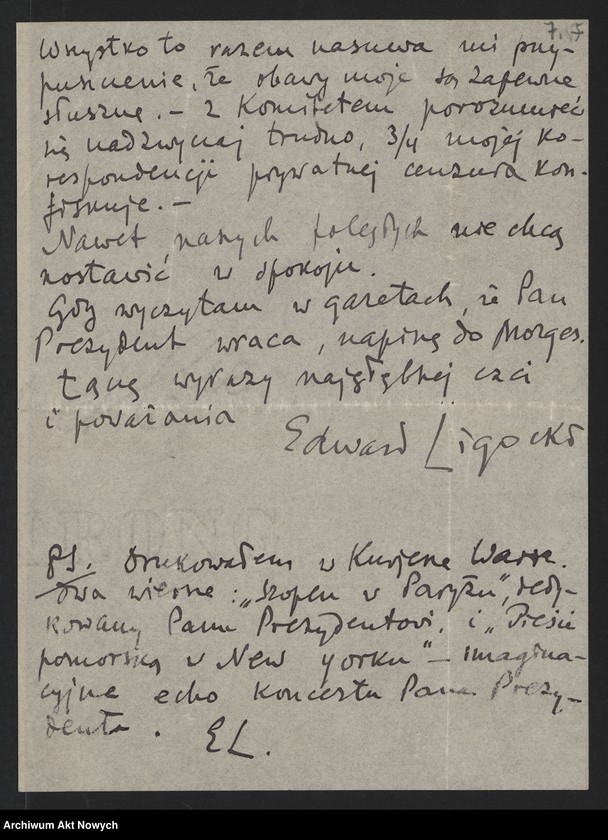 7.
Wszystko to razem nasuwa mi przy-
puszczenie, że obawy moje są zapewne
słuszne. – Z Komitetem porozumieć
się nadzwyczaj trudno, 3/4 mojej ko-
respondencji prywatnej cenzura kon-
fiskuje. –
Nawet naszych poległych nie chcą
zostawić w spokoju.
Gdy wyczytam w gazetach, że Pan
Prezydent wraca, napiszę do Morges.
Łączę wyrazy najgłębszej czci
i poważania
Edward Ligocki
PS. Drukowałem w Kurjerze Warsz.
dwa wiersze: „Szopen w Paryżu", dedy-
kowany Panu Prezydentowi, i „Pieśń
pomorską w New Yorku" – imagina-
cyjne echo koncertu Pana Prezy-
denta.
EL.
Archiwum Akt Nowych